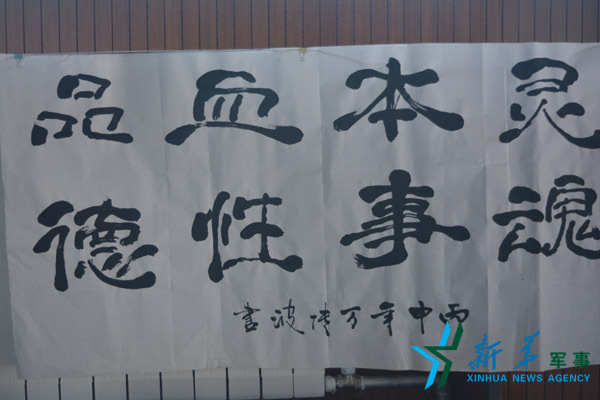 灵魂
本事
血性
品德
丙申年万波書
新华军事
XINHUA NEWS AGENCY